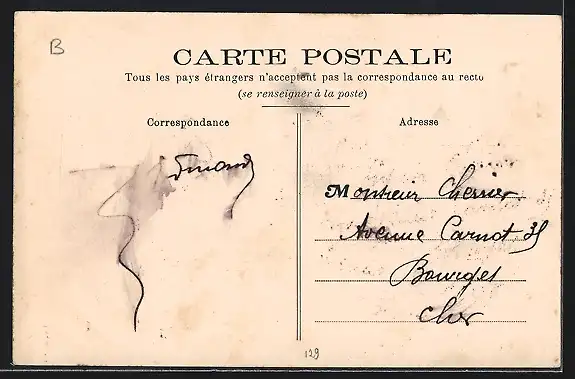 B
CARTE POSTALE
Tous les pays étrangers n'acceptent pas la correspondance au recto
(se renseigner à la poste)
Correspondance
Adresse
Monsieur
Avenue Carnot 35
Bourges
Cher
129